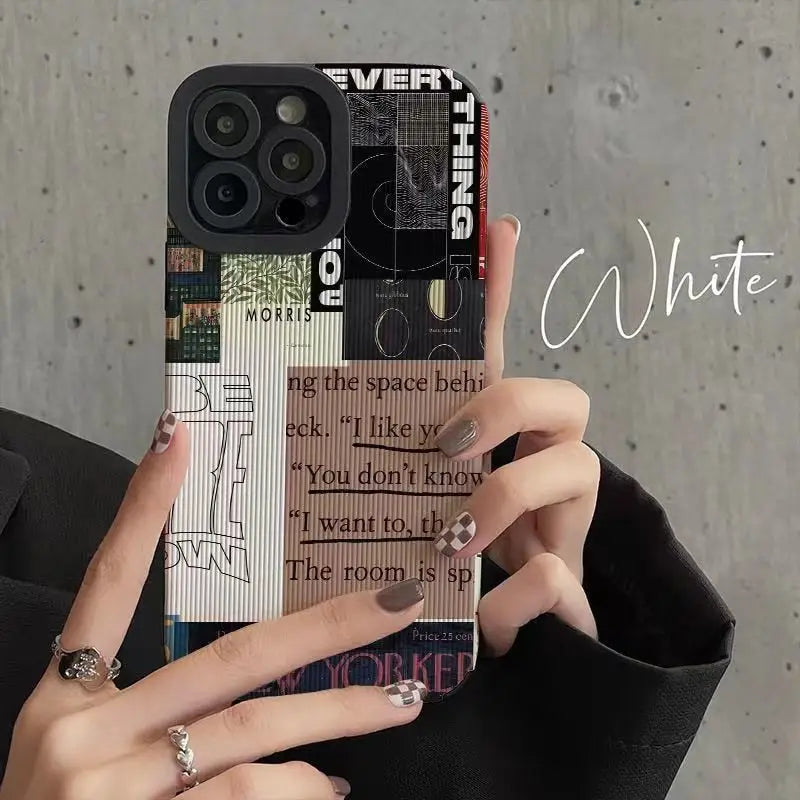 EVERY
THING
IS
YOU
MORRIS
White
BE
HERE
NOW
ng the space behi
eck. "I like yo
"You don't know
"I want to, th
The room is sp
Price 25 cen
NEW YORKER